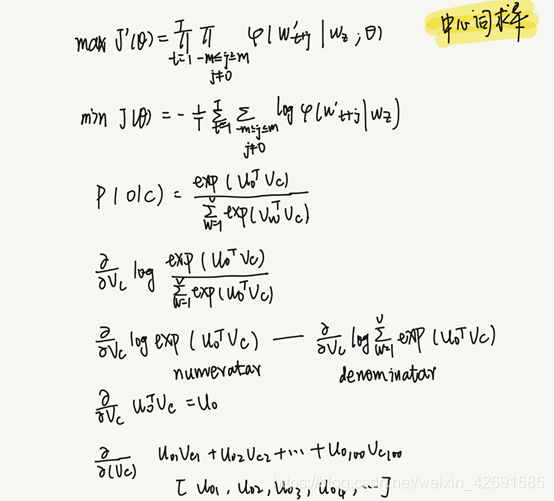 max J'(θ) = ∏_{t=1}^{T} ∏_{-m≤j≤m, j≠0} φ(w'_{t+j} | w_z ; θ)
中心词求导
min J(θ) = - 1/T ∑_{t=1}^{T} ∑_{-m≤j≤m, j≠0} log φ(w'_{t+j} | w_z)
P(o|c) = exp(u_o^T v_c) / ∑_{w=1}^{v} exp(u_w^T v_c)
∂/∂v_c log exp(u_o^T v_c) / ∑_{w=1}^{v} exp(u_o^T v_c)
∂/∂v_c log exp(u_o^T v_c) — ∂/∂v_c log ∑_{w=1}^{v} exp(u_o^T v_c)
numeratar denominatar
∂/∂v_c u_o^T v_c = u_o
∂/∂(v_c) u_{o1}v_{c1} + u_{o2}v_{c2} + ⋯ + u_{o100}v_{c100}
[ u_{o1}, u_{o2}, u_{o3}, u_{o4}, ⋯ ]
https://blog.csdn.net/weixin_42691585